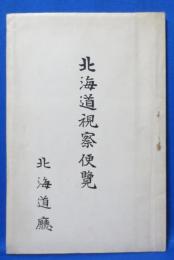 北海道視察便覧
北海道廳